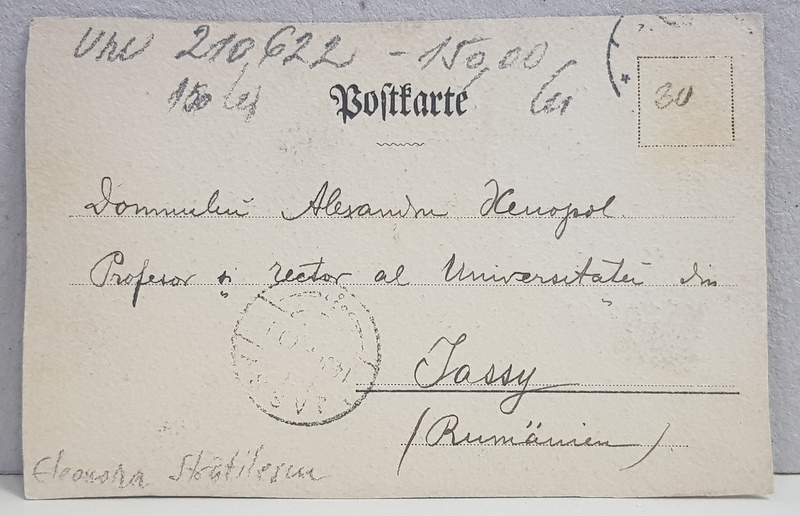 210,622 - 150,00
150 lei Postkarte lei 30
Domnului Alexandru Xenopol.
Profesor și rector al Universităței din
Jassy
(Rumänien)
Eleonora Strătilescu